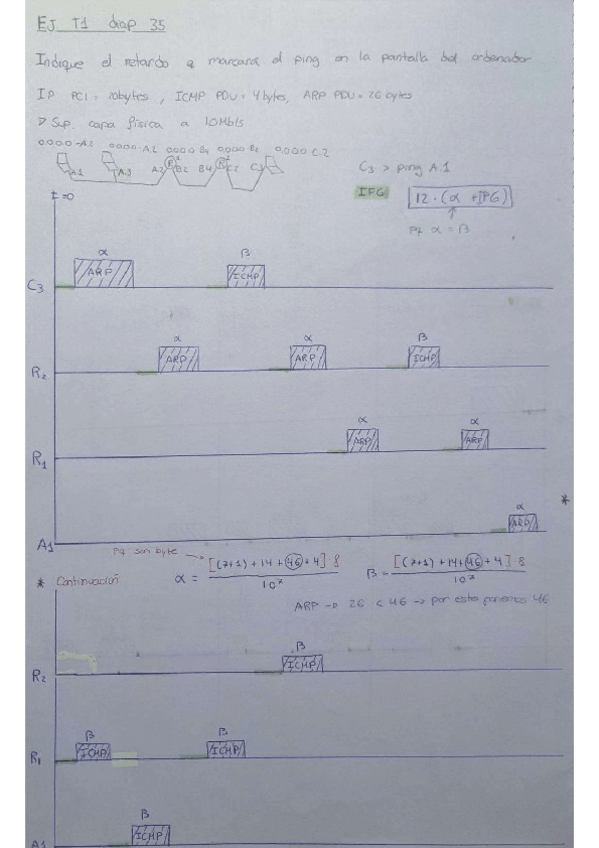 EJ T1 diap 35
Indique el retardo q marcará el ping en la pantalla del ordenador
IP PCI = 20bytes, ICMP PDU = 4 bytes, ARP PDU = 26 bytes
Sup. capa física a 10Mb/s
0.0.0.0-A.2 0.0.0.0-A.2 0.0.0.0 B4 0.0.0.0 B2 0.0.0.0 C.2
A1 A3 A2 R1 B2 B4 R2 C2 C3
C3 > ping A.1
IFG 12·(α + IFG)
Pq α = β
t=0
α β
C3 ARP ICMP
α α β
R2 ARP ARP ICMP
α α
R1 ARP ARP
α
A1 ARP *
Pq son byte
α = [(7+1) + 14 + 46 + 4] 8 / 10⁷ β = [(7+1) + 14 + 46 + 4] 8 / 10⁷
* Continuación
ARP → 26 < 46 → por esto ponemos 46
β
R2 ICMP
β β
R1 ICMP ICMP
β
A1 ICMP